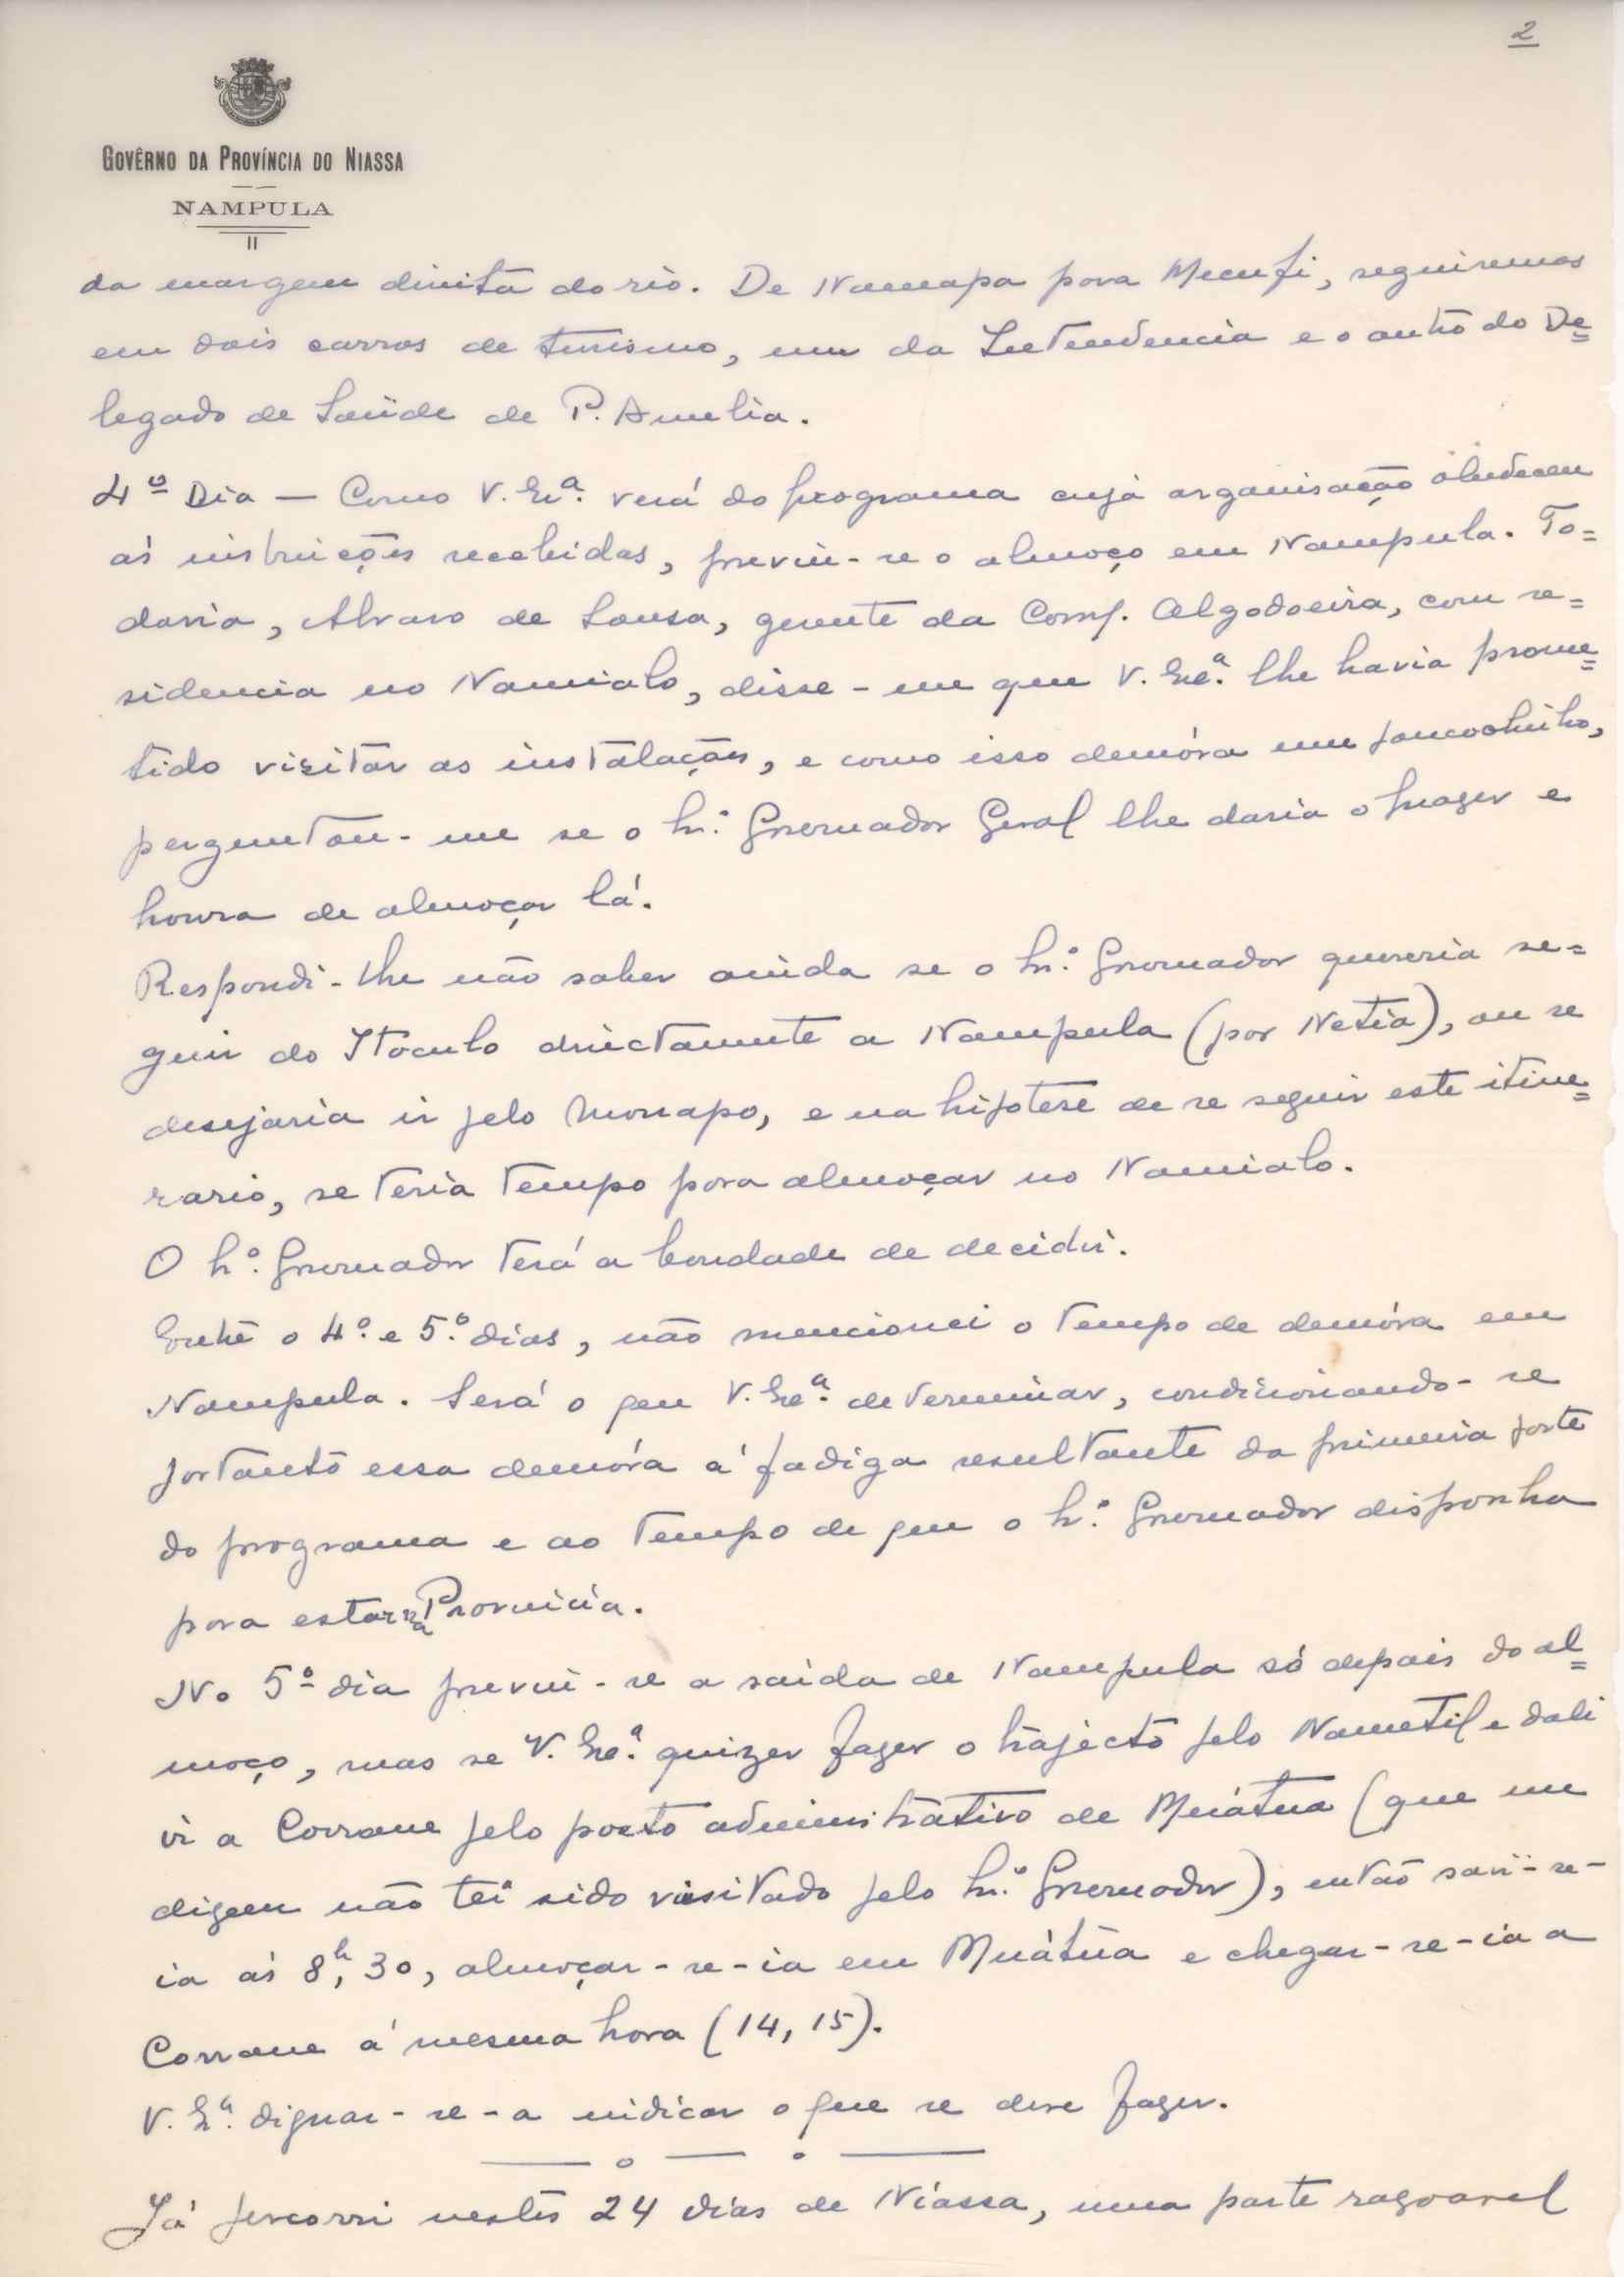 2
GOVÊRNO DA PROVÍNCIA DO NIASSA
NAMPULA
da margem direita do rio. De Namapa para Mecufi, seguiremos
em dois carros de turismo, um da Intendencia e o auto do De=
legado de Saúde de P. Amelia.
4º Dia — Como V. Exª. verá do programa cuja organisação obedeceu
ás instruções recebidas, previu-se o almoço em Nampula. To=
davia, Alvaro de Sousa, gerente da Comp. Algodoeira, com re=
sidencia no Namialo, disse-me que V. Exª. lhe havia prome=
tido visitar as instalações, e como isso demóra um poucochinho,
perguntou-me se o Sr. Governador Geral lhe daria o prazer e
honra de almoçar lá.
Respondi-lhe não saber ainda se o Sr. Governador quereria se=
guir do Itoculo directamente a Nampula (por Netia), ou se
desejaria ir pelo Monapo, e na hipotese de se seguir este itine=
rario, se teria tempo para almoçar no Namialo.
O Sr. Governador terá a bondade de decidir.
Entre o 4º. e 5º. dias, não mencionei o tempo de demóra em
Nampula. Será o que V. Exª. determinar, condicionando-se
portanto essa demóra á fadiga resultante da primeira parte
do programa e ao tempo de que o Sr. Governador disponha
para estar na Provincia.
No 5º dia previu-se a saída de Nampula só depois do al=
moço, mas se V. Exª. quizer fazer o trajecto pelo Nametil e dali
ir a Corrane pelo posto administrativo de Muátua (que me
dizem não ter sido visitado pelo Sr. Governador), então sair-se-
ia ás 8h,30, almoçar-se-ia em Muátua e chegar-se-ia a
Corrane á mesma hora (14,15).
V. Exª. dignar-se-a indicar o que se deve fazer.
Já percorri nestes 24 dias de Niassa, uma parte razoavel